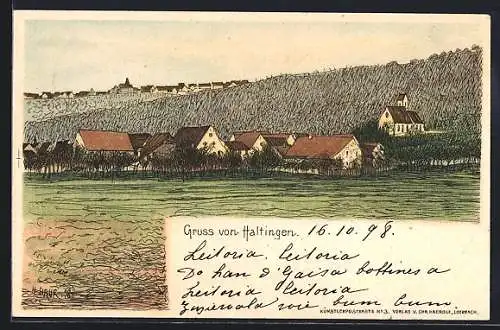 Gruss von Haltingen. 16.10.98.
Leitoria. Leitoria
Do han d'Gaisa bottines a
Leitoria Leitoria
wie bum bum.
KÜNSTLERPOSTKARTE No. 3. VERLAG V. CHR. HAERDLE, LOERRACH.
H. DAUR